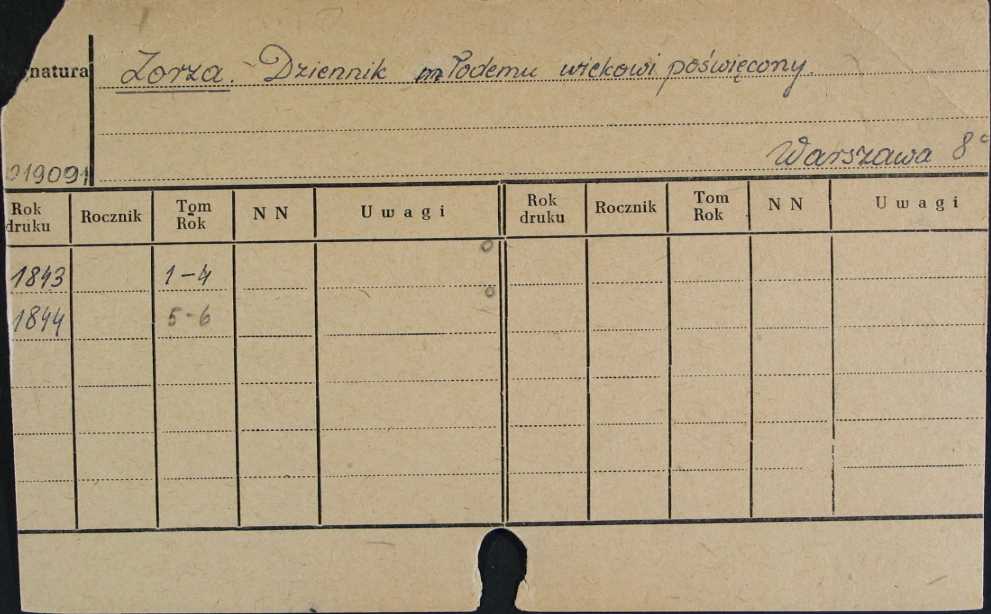 natura Zorza. Dziennik młodemu wiekowi poświęcony.
Warszawa 8°
019091
Rok druku Rocznik Tom Rok N N Uwagi Rok druku Rocznik Tom Rok N N Uwagi
1843 1-4
1844 5-6